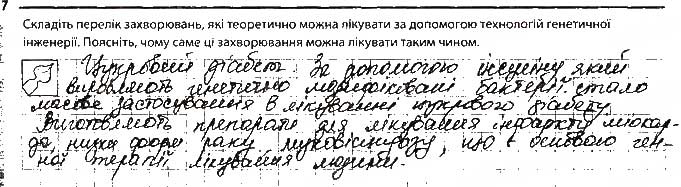 7
Складіть перелік захворювань, які теоретично можна лікувати за допомогою технологій генетичної
інженерії. Поясніть, чому саме ці захворювання можна лікувати таким чином.
Цукровий діабет. За допомогою інсуліну, який
виробляють генетично модифіковані бактерії стало
масове застосування в лікуванні цукрового діабету
Виготовляють препарати для лікування інфаркту міокар-
да, низки форм раку, муковісцидозу, що є основою ген-
ної терапії лікування людини.